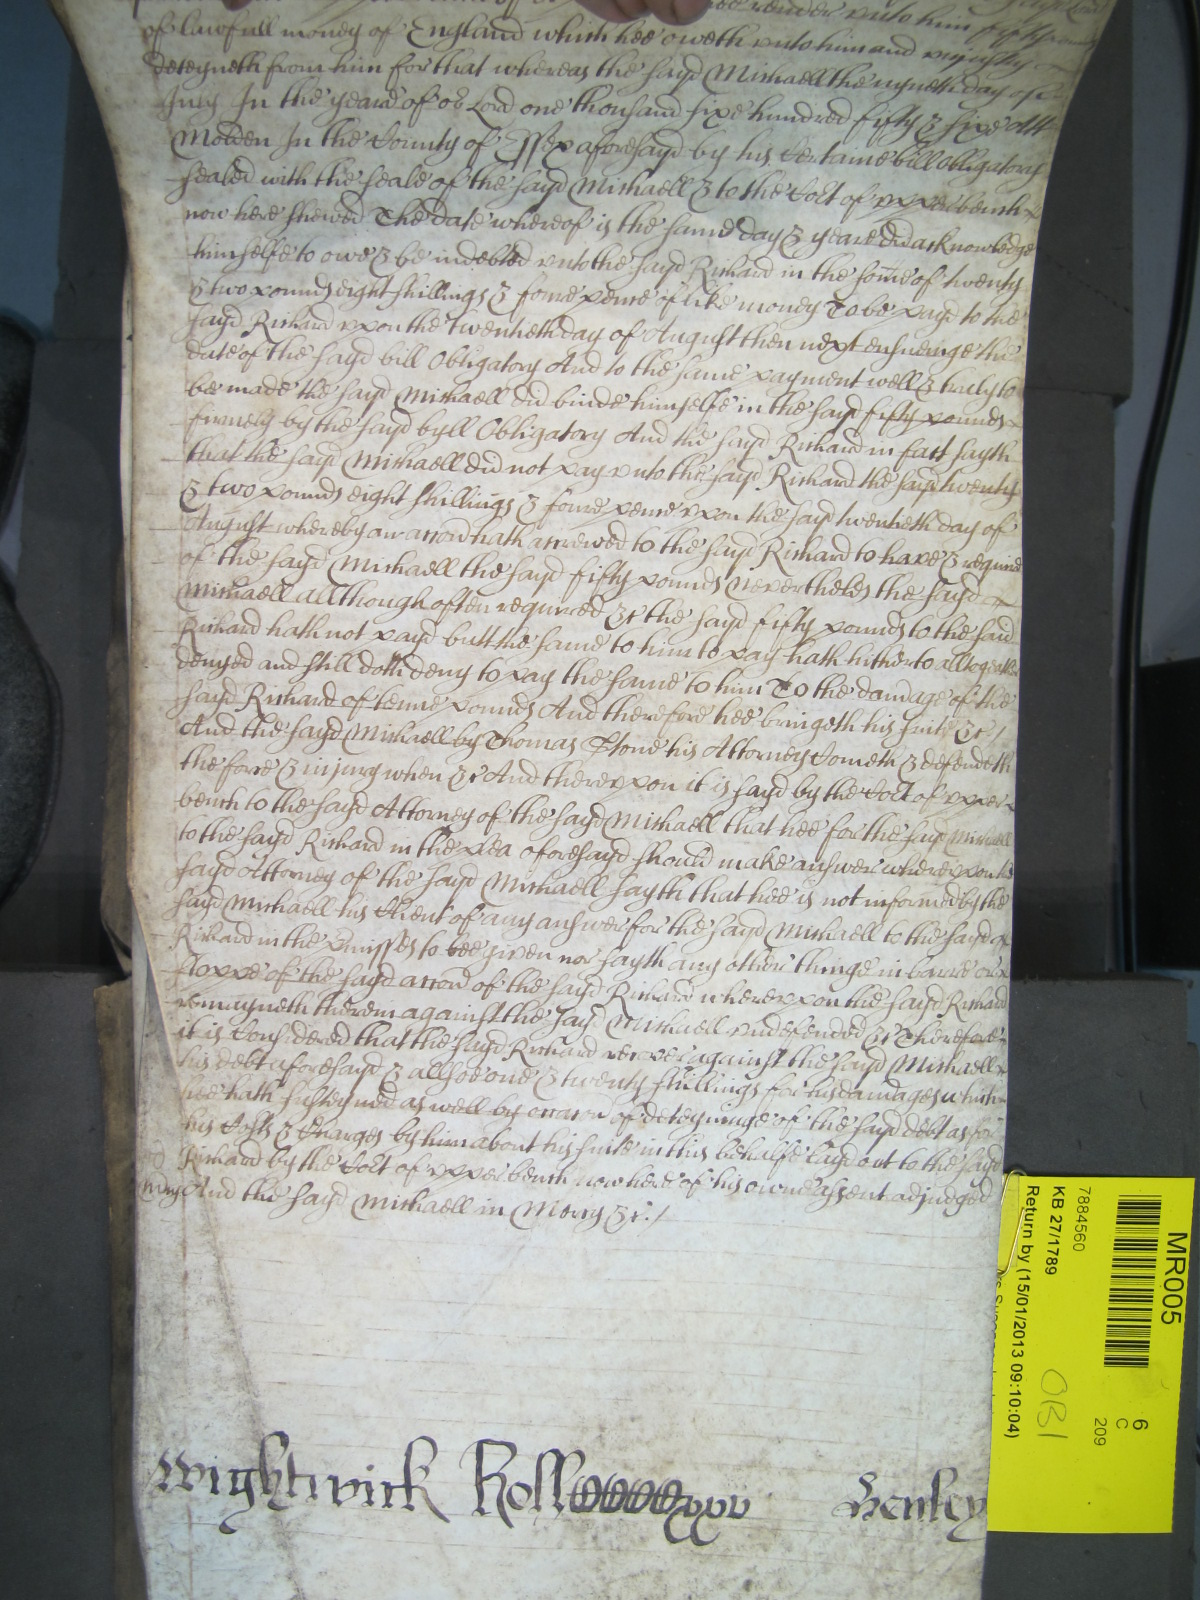 hee render unto him fifty pounds
of lawfull money of England which hee oweth unto him and uniustly
deteyneth from him for that whereas the sayd Michaell the nyneth day of
July In the yeare of oe Lord one thousand sixe hundred fifty & sixe Att
Malden In the County of Essex aforesayd by his Certaine bill obligatory
sealed with the seale of the sayd Michaell & to the Cort of upper bench
now here shewed The date whereof is the same day & yeare did acknowledge
himselfe to owe & be indebted unto the sayd Richard in the some of twenty
& two pounds eight shillings & foure pence of like money To be payd to the
sayd Richard uppon the twentieth day of August then next ensueinge the
date of the sayd bill Obligatory And to the same payment well & truly to
be made the sayd Michaell did binde himselfe in the sayd fifty pounds
firmely by the sayd byll Obligatory And the sayd Richard in fact sayth
that the sayd Michaell did not pay unto the sayd Richard the sayd twenty
& two pounds eight shillings & foure pence uppon the sayd twentieth day of
August whereby an accon hath accrewed to the sayd Richard to have & require
of the sayd Michaell the sayd fifty pounds Neverthelesse the sayd
Michaell allthough often required &c the sayd fifty pounds to the said
Richard hath not payd butt the same to him to pay hath hitherto alltogether
denyed and still doth deny to pay the same to him To the damage of the
sayd Richard of tenne pounds And therefore hee bringeth his suite &c /
And the sayd Michaell by Thomas Stone his Attorney Cometh & defendeth
the force & injury when &c And thereuppon it is sayd by the Cort of upper
bench to the sayd Attorney of the sayd Michaell that hee for the sayd Michaell
to the sayd Richard in the plea aforesayd should make answer whereuppon the
sayd Attorney of the sayd Michaell sayth that hee is not informed by the
sayd Michaell his Client of any answer for the sayd Michaell to the sayd
Richard in the pmisses to bee given nor sayth any other thinge in barre or
stoppe of the sayd accon of the sayd Richard whereuppon the sayd Richard
remayneth therein against the sayd Michaell undefended &c Therefore
it is Considered that the sayd Richard recover against the sayd Michaell
his debt aforesayd & allsoe one & twenty shillings for his damages which
hee hath susteyned as well by occacon of deteyninge of the sayd debt as for
his Costs & Charges by him about his suite in this behalfe layd out to the sayd
Richard by the Cort of upper bench now here of his owne assent adjudged
And the sayd Michaell in Mercy &c. /
Wightwick Roll xxv Henley
MR005
6
C
209
7884560
KB 27/1789
OB1
Return by (15/01/2013 09:10:04)